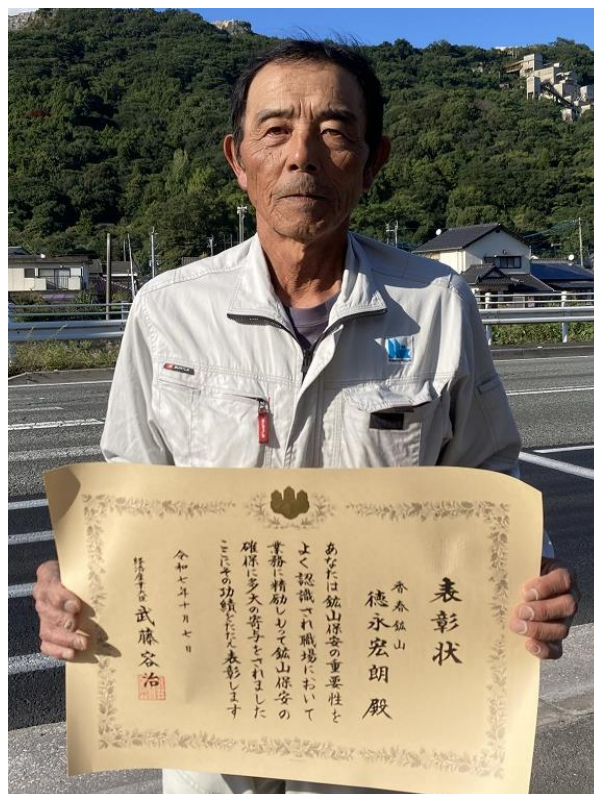 表彰状
香春鉱山
徳永宏朗 殿
あなたは鉱山保安の重要性を
よく認識され職場において
業務に精励しもって鉱山保安の
確保に多大の寄与をされました
ここにその功績をたたえ表彰します
令和七年十月七日
経済産業大臣 武藤容治